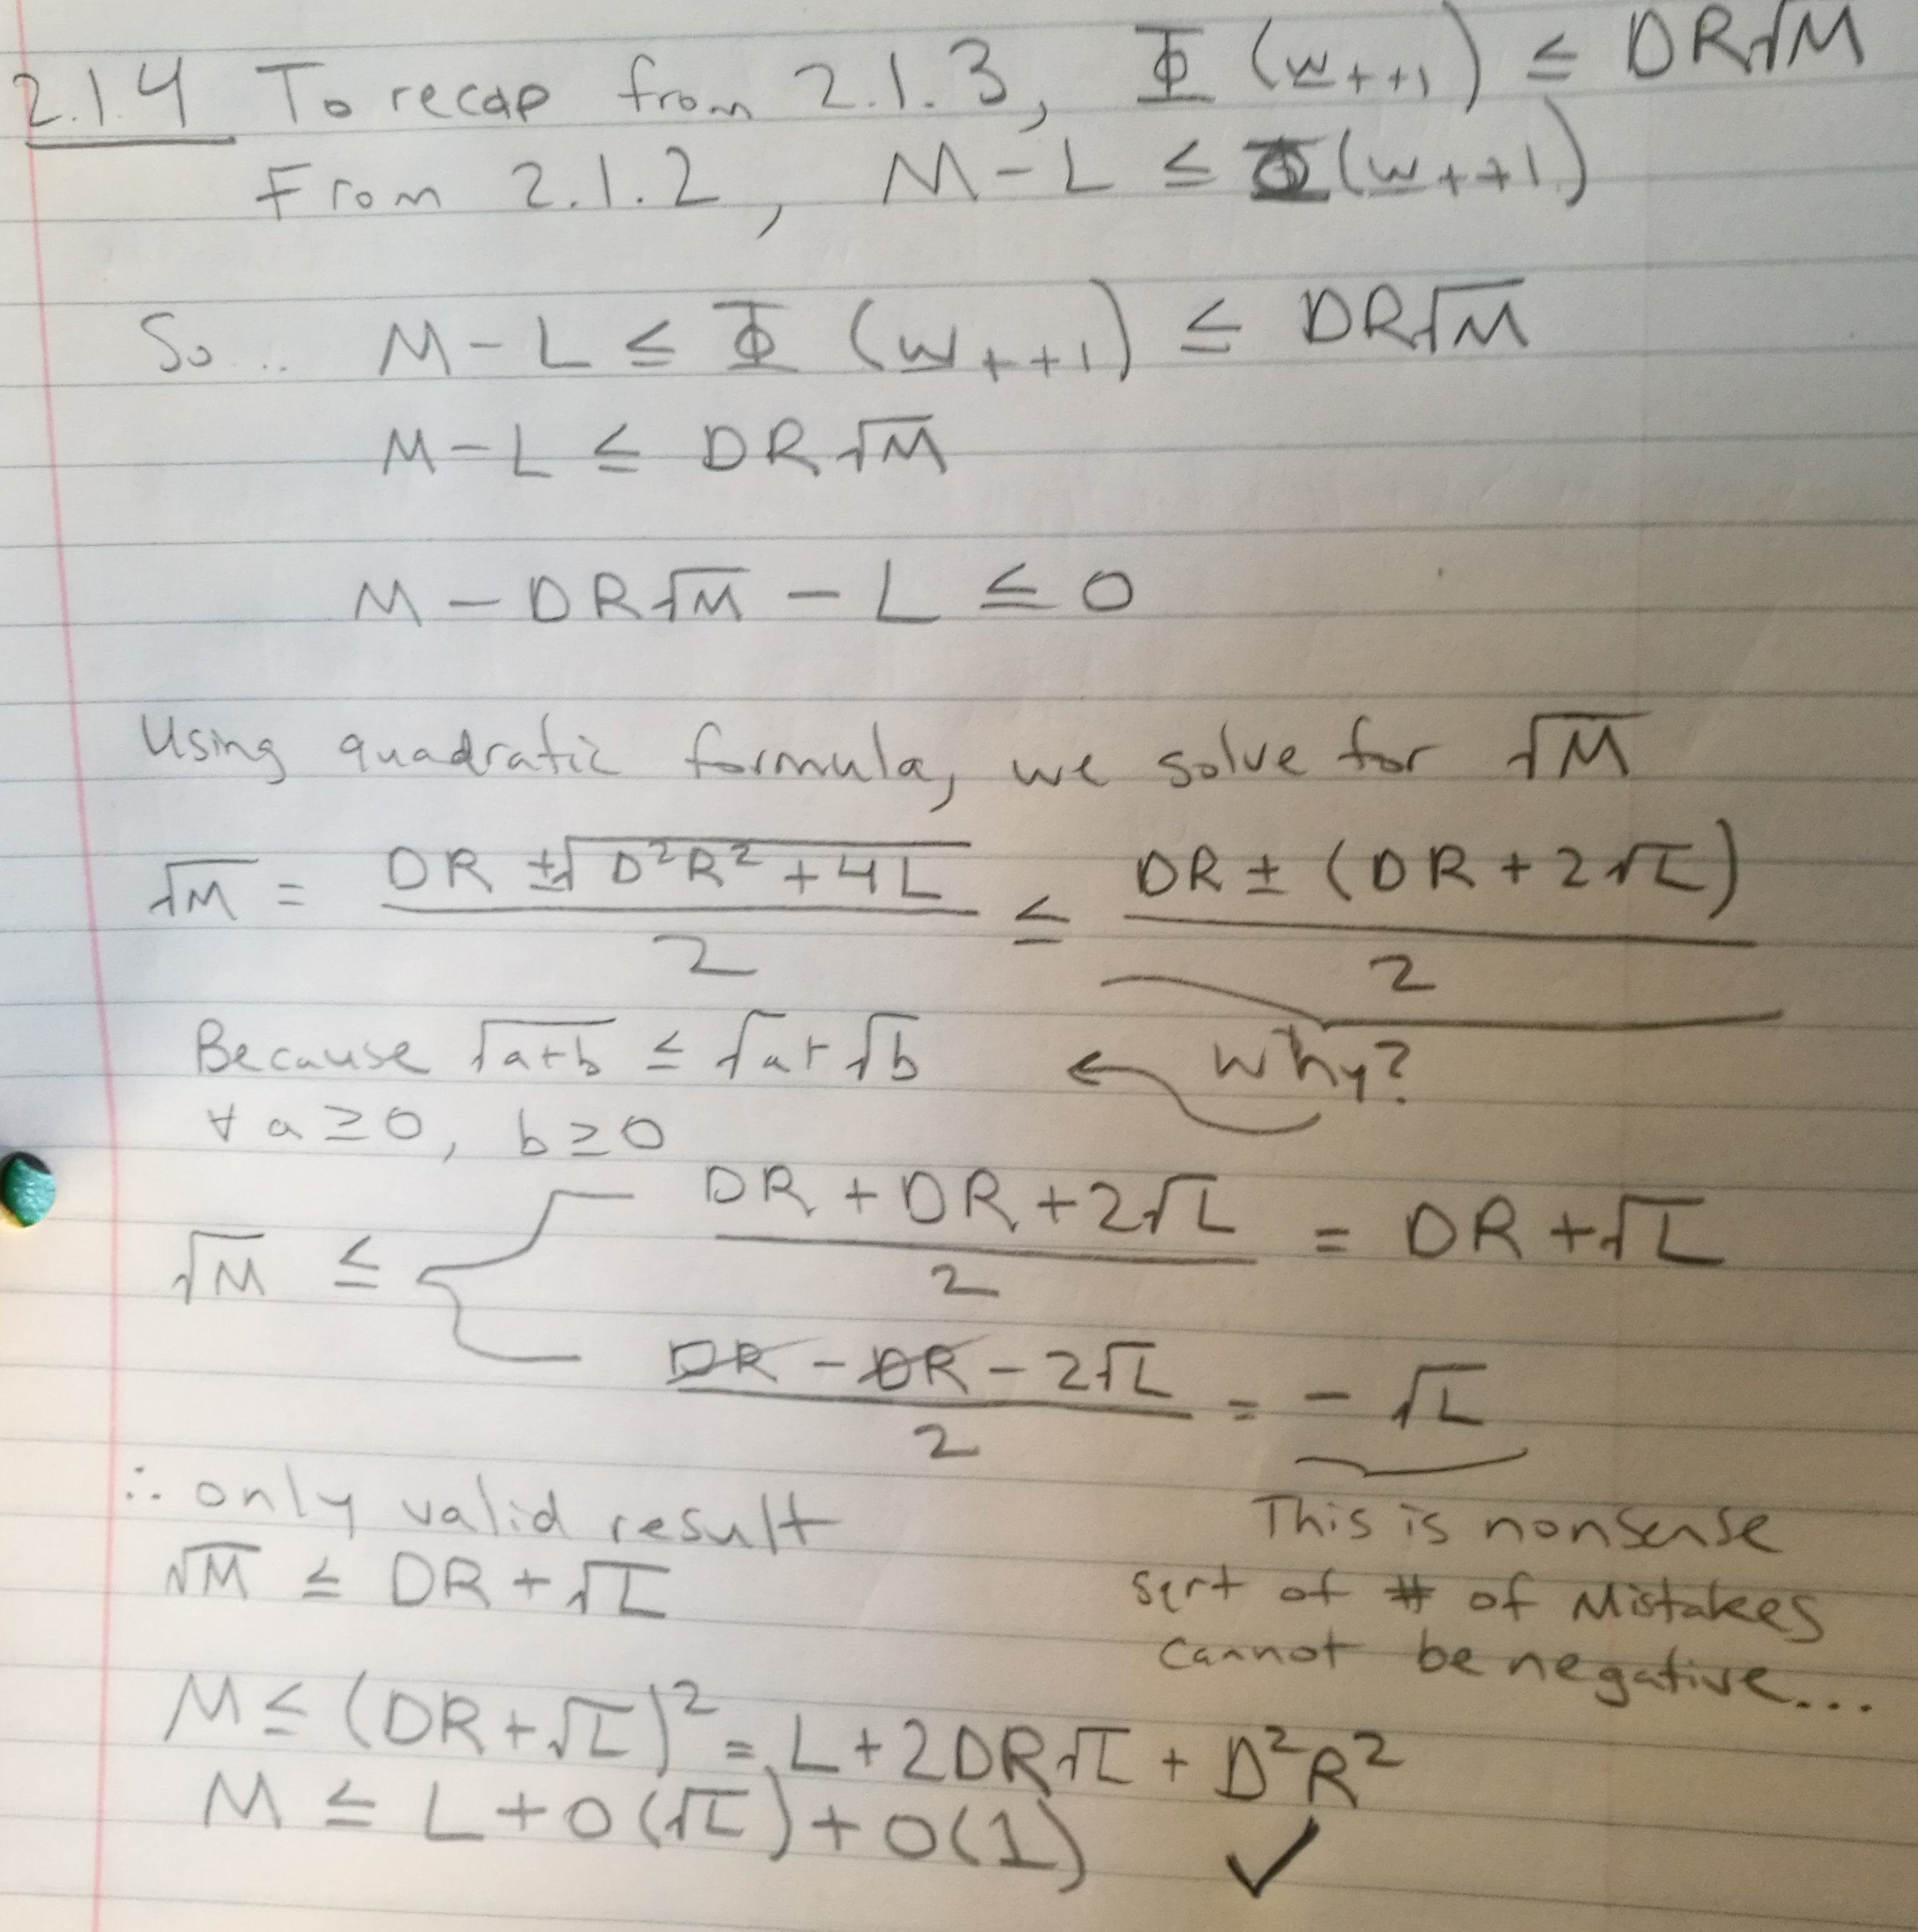 2.1.4 To recap from 2.1.3, Φ(w_{t+1}) ≤ DR√M
From 2.1.2, M-L ≤ Φ(w_{t+1})
So... M-L ≤ Φ(w_{t+1}) ≤ DR√M
M-L ≤ DR√M
M - DR√M - L ≤ 0
Using quadratic formula, we solve for √M
√M = (DR ± √(D²R² + 4L))/2 ≤ (DR ± (DR + 2√L))/2
Because √(a+b) ≤ √a + √b ← Why?
∀ a ≥ 0, b ≥ 0
√M ≤ { (DR + DR + 2√L)/2 = DR + √L
(DR - DR - 2√L)/2 = -√L
∴ only valid result
√M ≤ DR + √L
This is nonsense
sqrt of # of Mistakes
cannot be negative...
M ≤ (DR + √L)² = L + 2DR√L + D²R²
M ≤ L + O(√L) + O(1) ✓